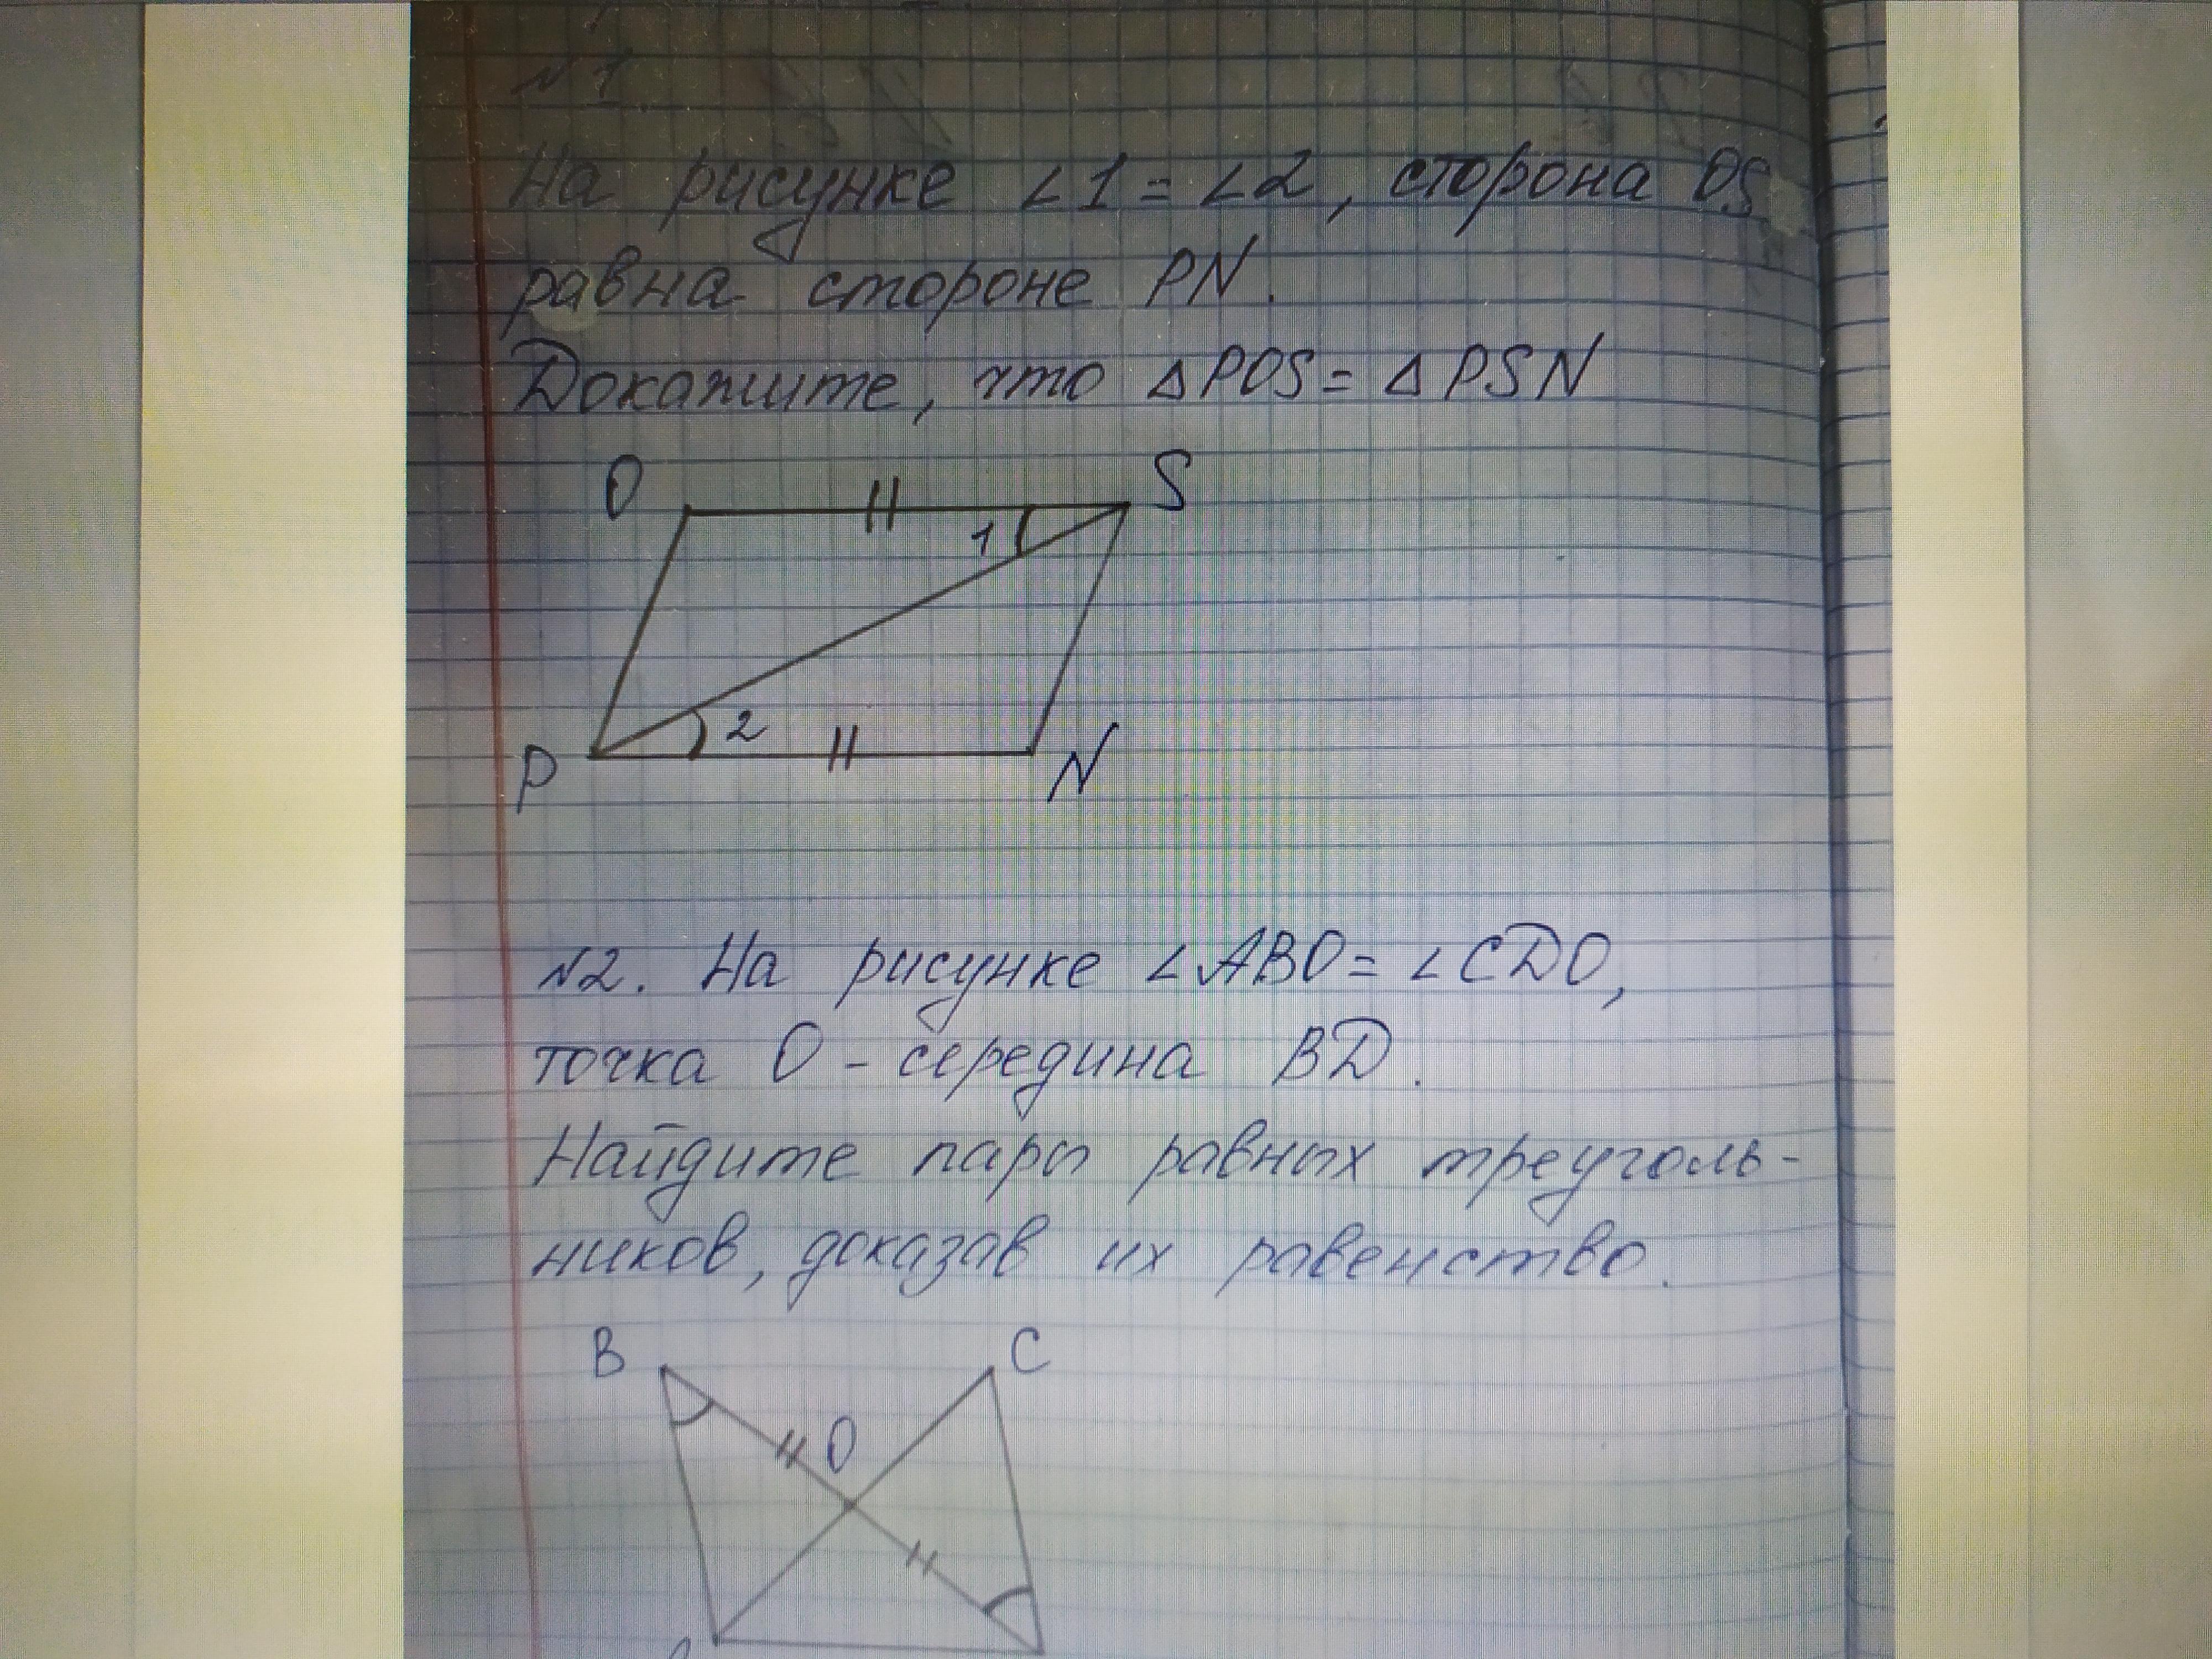 №1.
На рисунке ∠1 = ∠2, сторона OS
равна стороне PN.
Докажите, что △POS = △PSN
O
S
1
2
P
N
№2. На рисунке ∠ABO = ∠CDO,
точка O - середина BD.
Найдите пары равных треуголь-
ников, доказав их равенство.
B
C
O